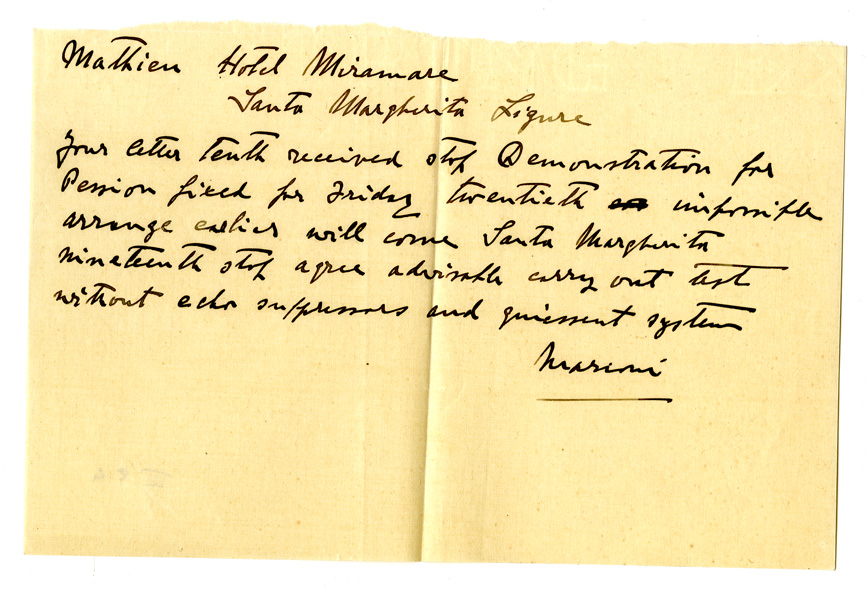 Mathieu Hotel Miramare
Santa Margherita Ligure
Your letter tenth received stop Demonstration for
Pession fixed for Friday twentieth impossible
arrange earlier will come Santa Margherita
nineteenth stop agree advisable carry out test
without echo suppressors and quiessent system
Marconi